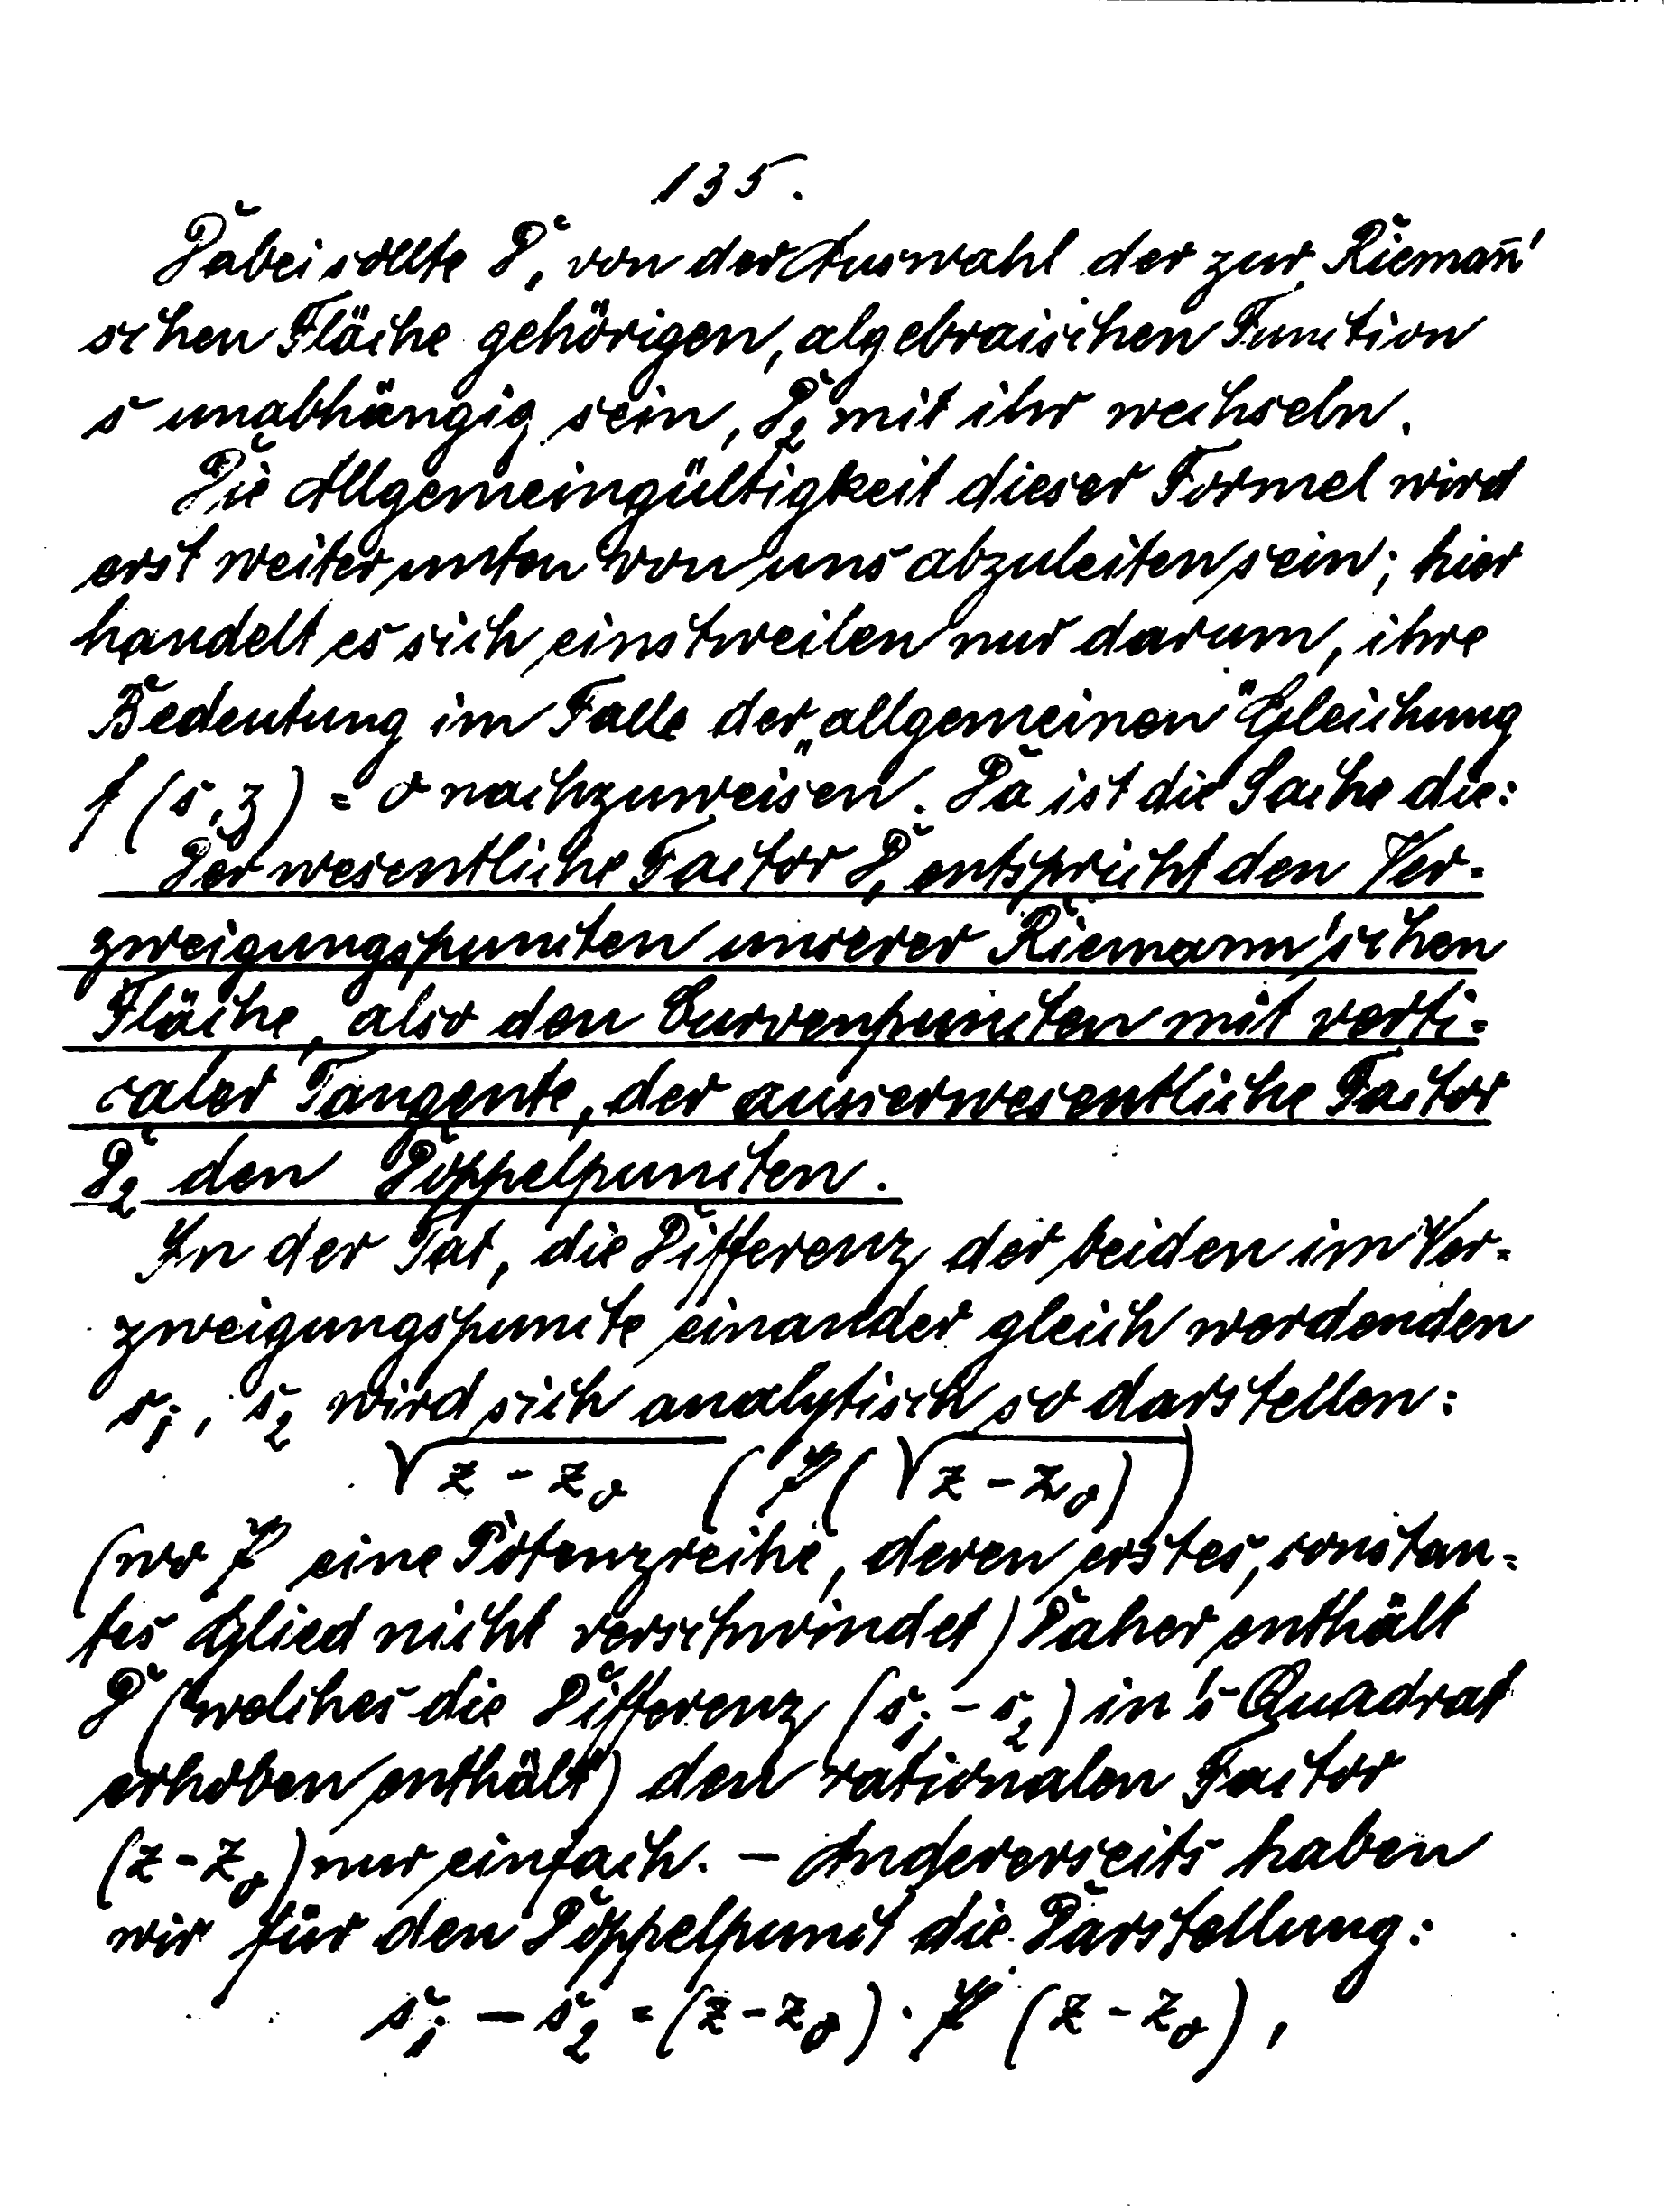 135.
Dabei sollte D₁ von der Auswahl der zur Riemañ'
schen Fläche gehörigen, algebraischen Function
s unabhängig sein, D₂ mit ihr wechseln.
Die Allgemeingültigkeit dieser Formel wird
erst weiter unten von uns abzuleiten sein; hier
handelt es sich einstweilen nur darum, ihre
Bedeutung im Falle der „allgemeinen" Gleichung
f (s, z) = 0 nachzuweisen. Da ist die Sache die:
Der wesentliche Factor D₁ entspricht den Ver-
zweigungspuncten unserer Riemann'schen
Fläche, also den Curvenpuncten mit verti-
caler Tangente, der ausserwesentliche Factor
D₂ den Doppelpuncten.
In der Tat, die Differenz der beiden im Ver-
zweigungspuncte einander gleich werdenden
s₁, s₂ wird sich analytisch so darstellen:
√z - z₀ (𝔓(√z - z₀))
(wo 𝔓 eine Potenzreihe, deren erstes, constan-
tes Glied nicht verschwindet) Daher enthält
D (welches die Differenz (s₁ - s₂) in's Quadrat
erhoben enthält) den rationalen Factor
(z - z₀) nur einfach. — Andererseits haben
wir für den Doppelpunct die Darstellung:
s₁ - s₂ = (z - z₀) · 𝔓 (z - z₀),